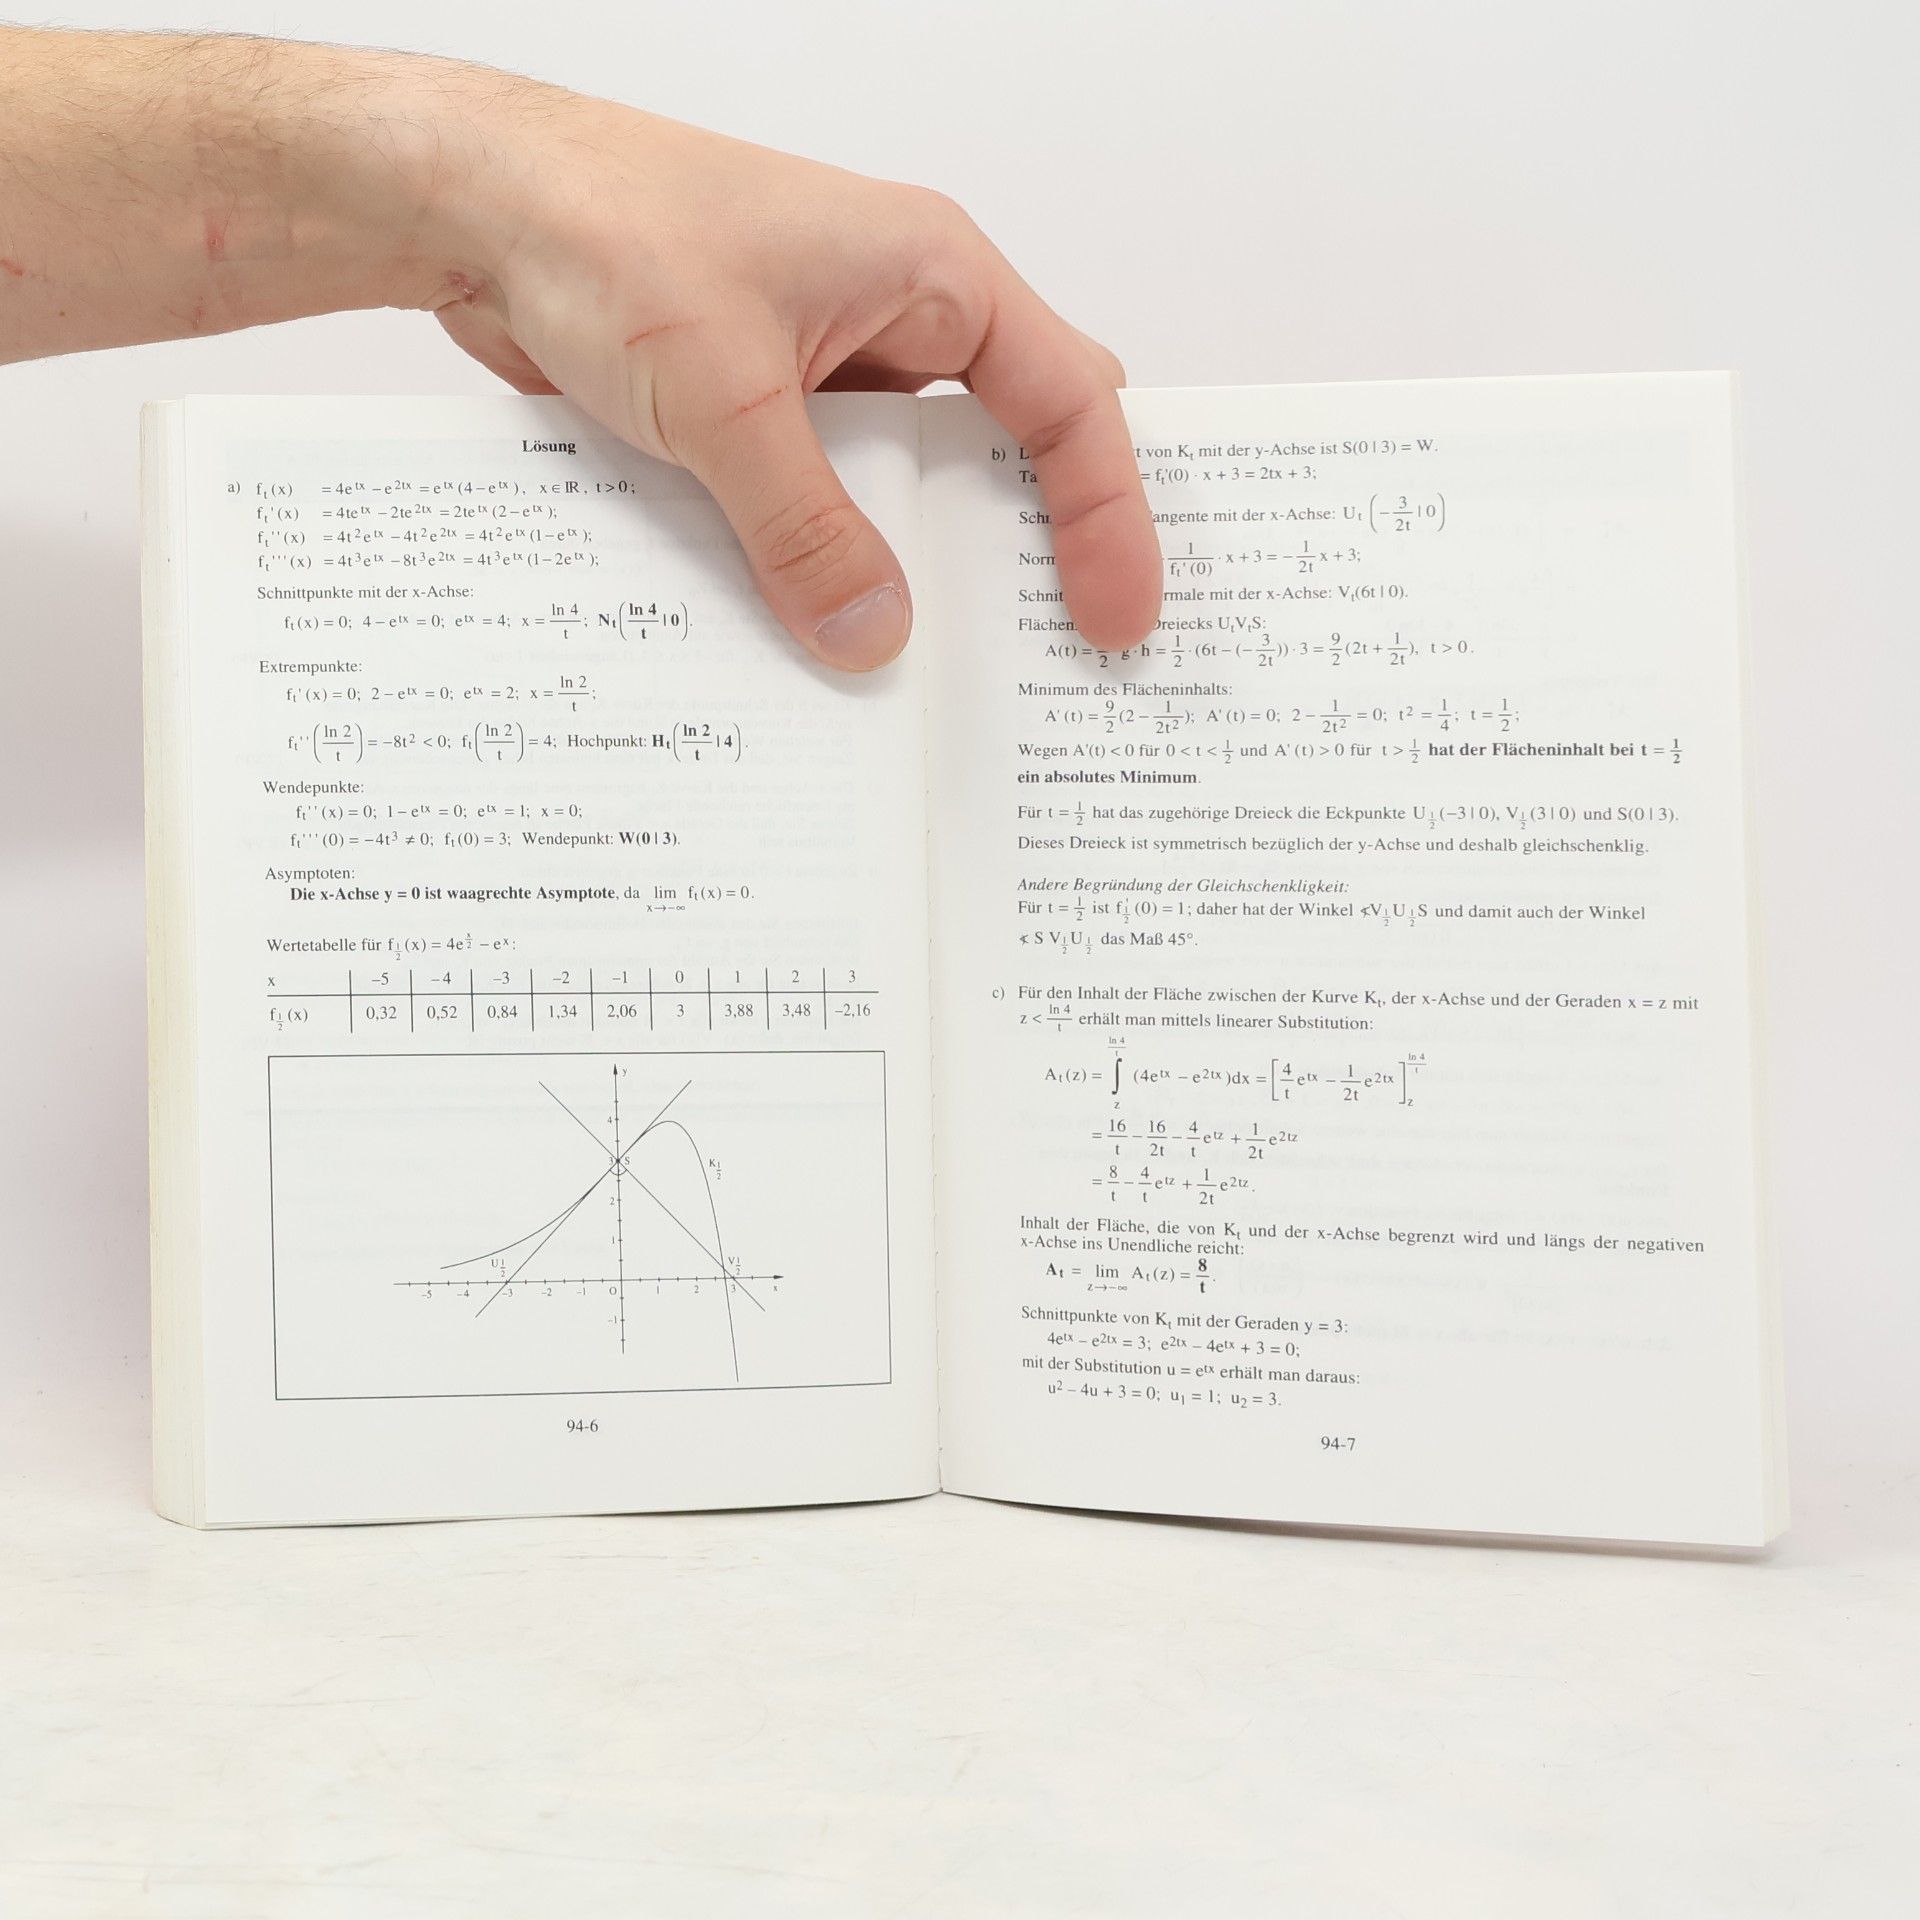 Lösung
a) fₜ(x) = 4eᵗˣ − e²ᵗˣ = eᵗˣ(4 − eᵗˣ), x ∈ ℝ, t > 0;
fₜ'(x) = 4teᵗˣ − 2te²ᵗˣ = 2teᵗˣ(2 − eᵗˣ);
fₜ''(x) = 4t²eᵗˣ − 4t²e²ᵗˣ = 4t²eᵗˣ(1 − eᵗˣ);
fₜ'''(x) = 4t³eᵗˣ − 8t³e²ᵗˣ = 4t³eᵗˣ(1 − 2eᵗˣ);
Schnittpunkte mit der x-Achse:
fₜ(x) = 0; 4 − eᵗˣ = 0; eᵗˣ = 4; x = ln 4/t; Nₜ(ln 4/t | 0).
Extrempunkte:
fₜ'(x) = 0; 2 − eᵗˣ = 0; eᵗˣ = 2; x = ln 2/t;
fₜ''(ln 2/t) = −8t² < 0; fₜ(ln 2/t) = 4; Hochpunkt: Hₜ(ln 2/t | 4).
Wendepunkte:
fₜ''(x) = 0; 1 − eᵗˣ = 0; eᵗˣ = 1; x = 0;
fₜ'''(0) = −4t³ ≠ 0; fₜ(0) = 3; Wendepunkt: W(0 | 3).
Asymptoten:
Die x-Achse y = 0 ist waagrechte Asymptote, da lim x→−∞ fₜ(x) = 0.
Wertetabelle für f½(x) = 4e^(x/2) − eˣ:
x −5 −4 −3 −2 −1 0 1 2 3
f½(x) 0,32 0,52 0,84 1,34 2,06 3 3,88 3,48 −2,16
y
4
3 S
K½
2
1
U½ V½
−5 −4 −3 −2 −1 0 1 2 3 x
−1
94-6
b) t von Kₜ mit der y-Achse ist S(0 | 3) = W.
= fₜ'(0) · x + 3 = 2tx + 3;
angente mit der x-Achse: Uₜ(−3/2t | 0)
1/fₜ'(0) · x + 3 = −1/2t x + 3;
rmale mit der x-Achse: Vₜ(6t | 0).
Flächen reiecks UₜVₜS:
A(t) = g · h = 1/2 · (6t − (−3/2t)) · 3 = 9/2(2t + 1/2t), t > 0.
Minimum des Flächeninhalts:
A'(t) = 9/2(2 − 1/2t²); A'(t) = 0; 2 − 1/2t² = 0; t² = 1/4; t = 1/2;
Wegen A'(t) < 0 für 0 < t < 1/2 und A'(t) > 0 für t > 1/2 hat der Flächeninhalt bei t = 1/2
ein absolutes Minimum.
Für t = 1/2 hat das zugehörige Dreieck die Eckpunkte U½(−3 | 0), V½(3 | 0) und S(0 | 3).
Dieses Dreieck ist symmetrisch bezüglich der y-Achse und deshalb gleichschenklig.
Andere Begründung der Gleichschenkligkeit:
Für t = 1/2 ist f½'(0) = 1; daher hat der Winkel ∢V½U½S und damit auch der Winkel
∢ S V½U½ das Maß 45°.
c) Für den Inhalt der Fläche zwischen der Kurve Kₜ, der x-Achse und der Geraden x = z mit
z < ln 4/t erhält man mittels linearer Substitution:
Aₜ(z) = ∫_z^(ln 4/t) (4eᵗˣ − e²ᵗˣ)dx = [4/t eᵗˣ − 1/2t e²ᵗˣ]_z^(ln 4/t)
= 16/t − 16/2t − 4/t e^(tz) + 1/2t e^(2tz)
= 8/t − 4/t e^(tz) + 1/2t e^(2tz).
Inhalt der Fläche, die von Kₜ und der x-Achse begrenzt wird und längs der negativen
x-Achse ins Unendliche reicht:
Aₜ = lim z→−∞ Aₜ(z) = 8/t.
Schnittpunkte von Kₜ mit der Geraden y = 3:
4eᵗˣ − e²ᵗˣ = 3; e²ᵗˣ − 4eᵗˣ + 3 = 0;
mit der Substitution u = eᵗˣ erhält man daraus:
u² − 4u + 3 = 0; u₁ = 1; u₂ = 3.
94-7